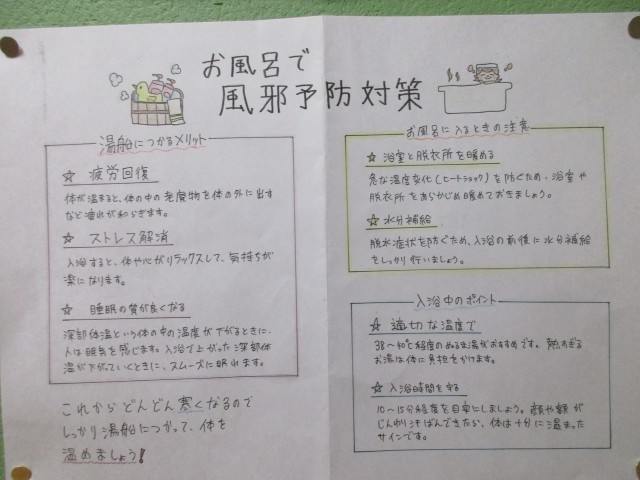 お風呂で
風邪予防対策
湯船につかるメリット
☆ 疲労回復
体が温まると、体の中の老廃物を体の外に出す
など疲れが和らぎます。
☆ ストレス解消
入浴すると、体や心がリラックスして、気持ちが
楽になります。
☆ 睡眠の質が良くなる
深部体温という体の中の温度が下がるときに、
人は眠気を感じます。入浴で上がった深部体
温が下がっていくときに、スムーズに眠れます。
これからどんどん寒くなるので
しっかり湯船につかって、体を
温めましょう!
お風呂に入るときの注意
☆ 浴室と脱衣所を暖める
急な温度変化(ヒートショック)を防ぐため、浴室や
脱衣所をあらかじめ暖めておきましょう。
☆ 水分補給
脱水症状を防ぐため、入浴の前後に水分補給
をしっかり行いましょう。
入浴中のポイント
☆ 適切な温度で
38~40℃程度のぬるま湯がおすすめです。熱すぎる
お湯は体に負担をかけます。
☆ 入浴時間を守る
10~15分程度を目安にしましょう。顔や額が
じんわり汗ばんできたら、体は十分に温まった
サインです。